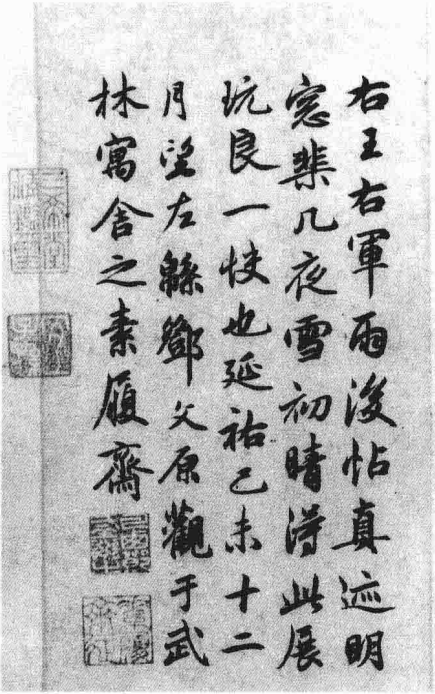 右王右軍雨後帖真迹明
窓棐几夜雪初晴得此展
玩良一快也延祐己未十二
月望左緜鄧文原觀于武
林寓舍之素履齋